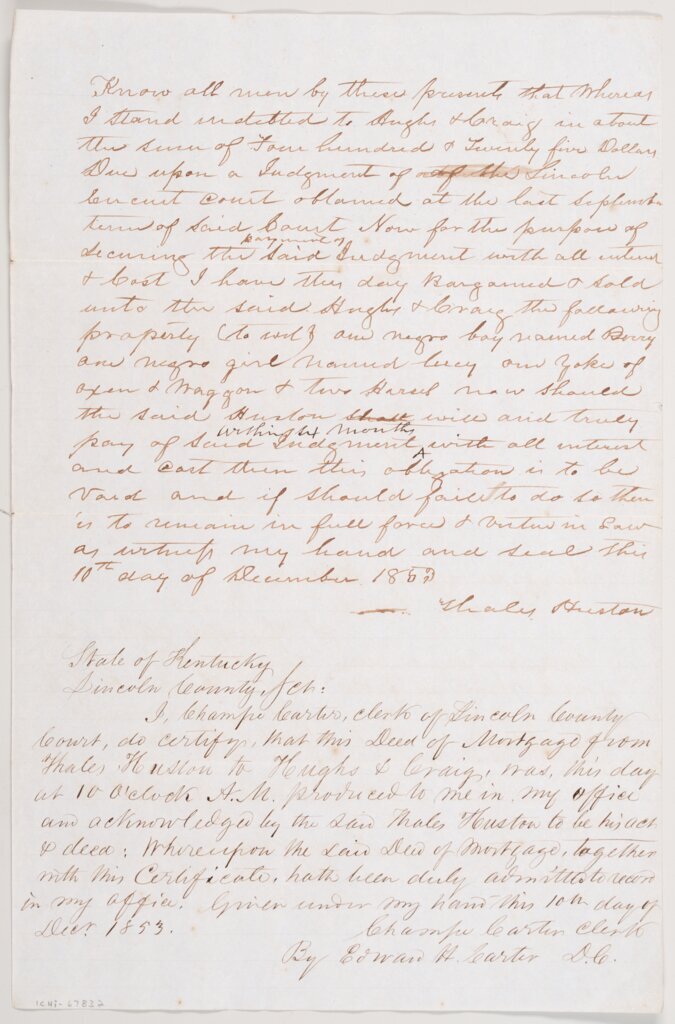 Know all men by these presents that Whereas
I stand indebted to Hughs & Craig in about
the sum of Four hundred & Twenty five Dollars
Due upon a Judgment of of the Lincoln
Circuit Court obtained at the last September
term of said Court Now for the purpose of
payment of
securing the said Judgment with all interest
& Cost I have this day Bargained & sold
unto the said Hughs & Craig the following
property (to wit) one negro boy named Berry
one negro girl named Lucy one Yoke of
oxen & Waggon & two Horses now should
the said Huston shall well and truly
within six months
pay of said Judgment ^ with all interest
and Cost then this obligation is to be
Void and if should fail to do so then
is to remain in full force & Virtue in Law
as witness my hand and seal this
10th day of December 1853
Thales Huston
State of Kentucky
Lincoln County, Sct:
I, Champe Carter, clerk of Lincoln County
Court, do certify, that this Deed of Mortgage from
Thales Huston to Hughs & Craig, was, this day
at 10 O'Clock A.M. produced to me in my office
and acknowledged by the said Thales Huston to be his act
& deed: Whereupon the said Deed of Mortgage, together
with this Certificate, hath been duly admitted to record
in my office. Given under my hand this 10th day of
Decr. 1853.
Champe Carter Clerk
By Edward H. Carter D.C.
ICHi-67832